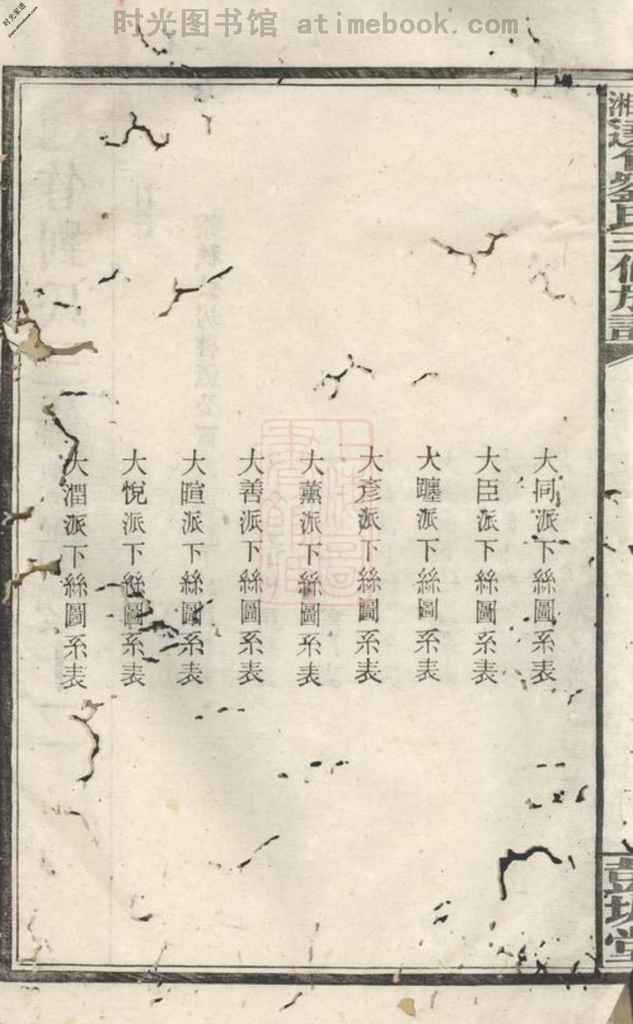 时光图书馆 atimebook.com
大同派下絲圖系表
大臣派下絲圖系表
大躔派下絲圖系表
大彦派下絲圖系表
大薰派下絲圖系表
大善派下絲圖系表
大暄派下絲圖系表
大悅派下絲圖系表
大潤派下絲圖系表
彭城堂